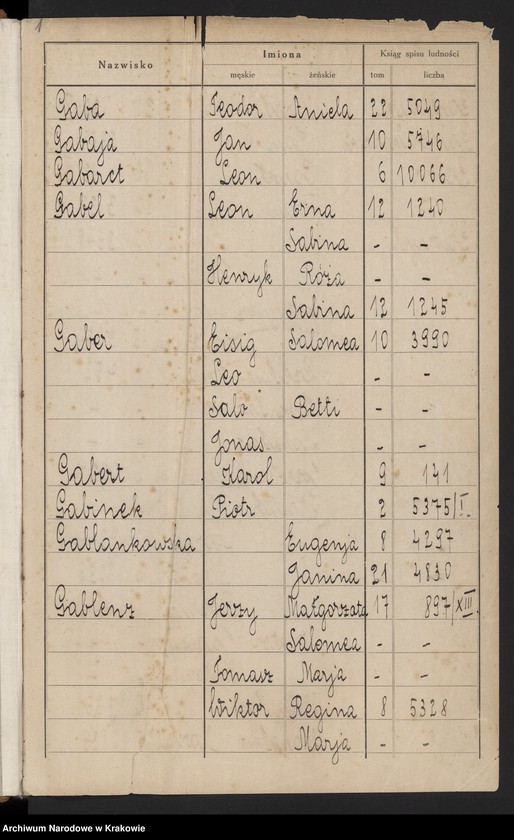 1
Nazwisko Imiona Ksiąg spisu ludności
męskie żeńskie tom liczba
Gaba Teodor Aniela 22 5049
Gabaja Jan 10 5746
Gabarct Leon 6 10066
Gabel Leon Erna 12 1240
Sabina - -
Henryk Róża - -
Sabina 12 1245
Gaber Eisig Salomea 10 3990
Leo - -
Salo Betti - -
Jonas - -
Gabert Karol 9 141
Gabinek Piotr 2 5375/I.
Gablankowska Eugenja 8 4297
Janina 21 4830
Gablenz Jerzy Małgorzata 17 897/XIII.
Salomea - -
Tomasz Marja - -
Wiktor Regina 8 5328
Marja - -
Archiwum Narodowe w Krakowie